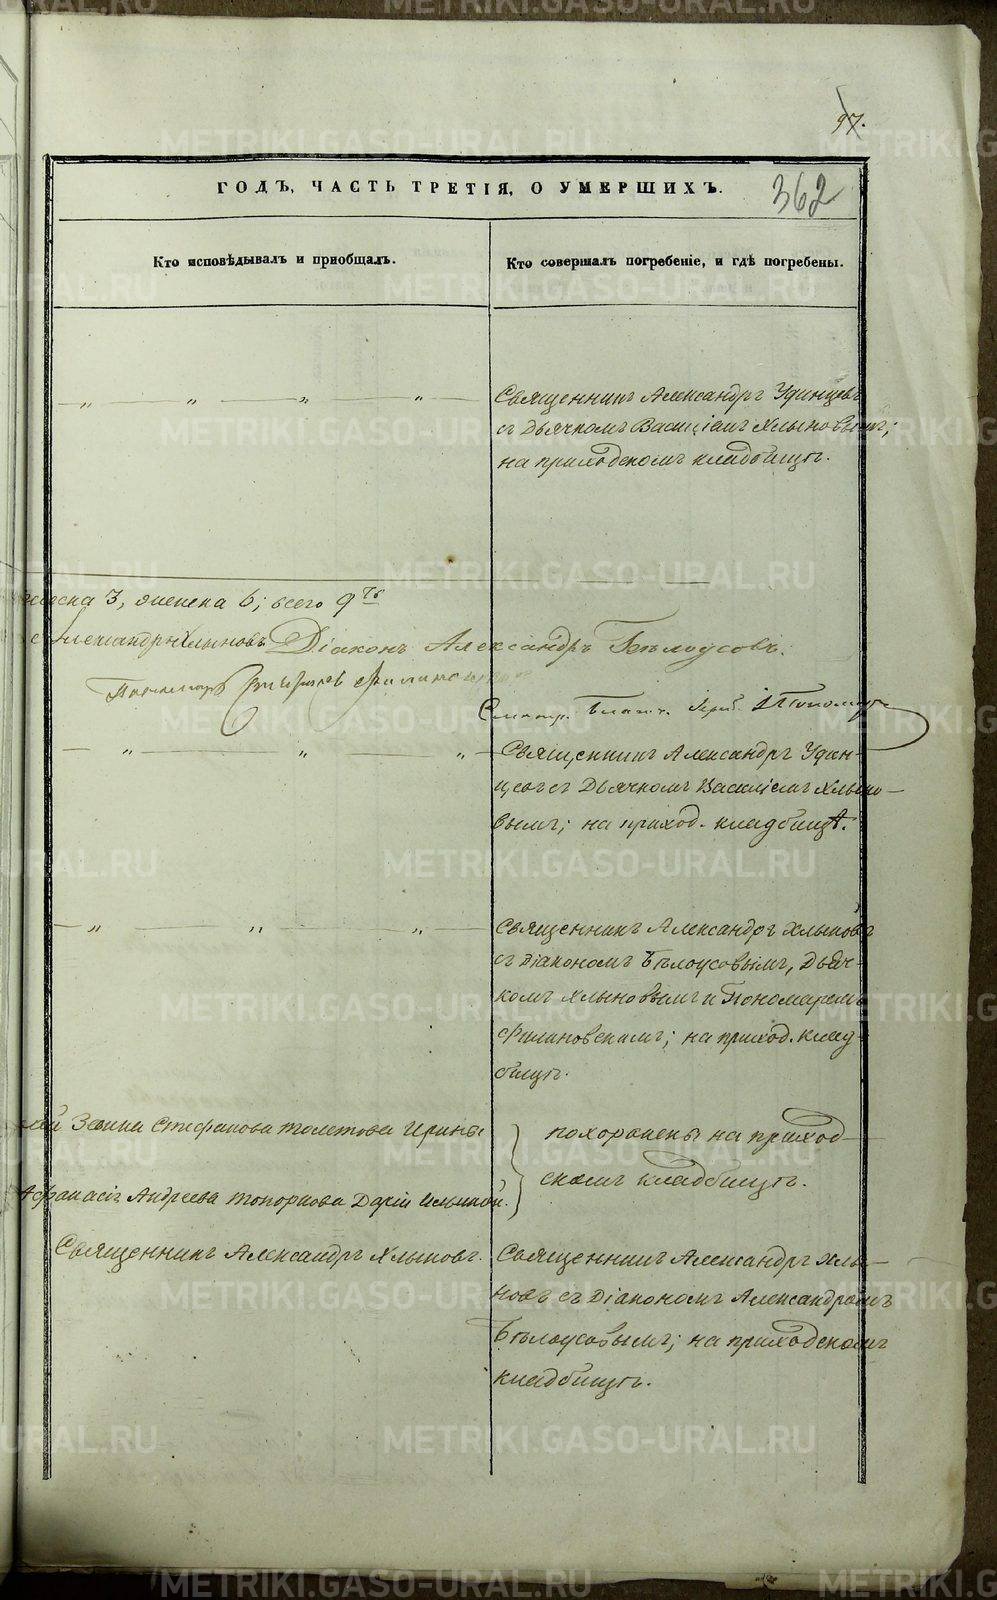 97.
ГОДЪ, ЧАСТЬ ТРЕТІЯ, О УМЕРШИХЪ.
362
Кто исповѣдывалъ и пріобщалъ.
Кто совершалъ погребеніе, и гдѣ погребены.
— „ — „ — „ — „ —
Священникъ Александръ Удинцевъ
съ Дьячкомъ Василіемъ Хлыновымъ;
на приходскомъ кладбищѣ.
3, женска 6; всего 9ть
Александръ Хлыновъ Діаконъ Александръ Бѣлоусовъ.
Пономарь
— „ — „ — „ —
Священникъ Александръ Удин-
цевъ съ Дьячкомъ Василіемъ Хлыно-
вымъ; на приход. кладбищѣ.
— „ — „ — „ —
Священникъ Александръ Хлыновъ
съ Діакономъ Бѣлоусовымъ, Дьяч-
комъ Хлыновымъ и Пономаремъ
Филиновскимъ; на приход. клад-
бищѣ.
Стефанова Ирины
Афанасія Андреева Топоркова Дарьи Ильиной.
похоронены на приход-
скомъ кладбищѣ.
Священникъ Александръ Хлыновъ.
Священникъ Александръ Хлы-
новъ съ Діакономъ Александромъ
Бѣлоусовымъ; на приходскомъ
кладбищѣ.
METRIKI.GASO-URAL.RU